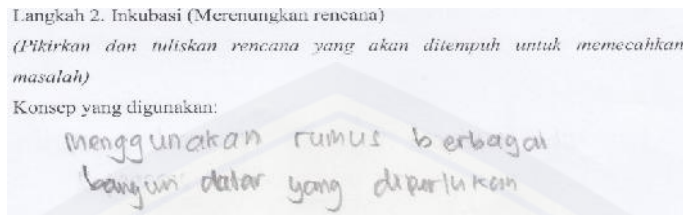 Langkah 2. Inkubasi (Merenungkan rencana)
(Pikirkan dan tuliskan rencana yang akan ditempuh untuk memecahkan
masalah)
Konsep yang digunakan:
menggunakan rumus berbagai
bangun datar yang diperlukan